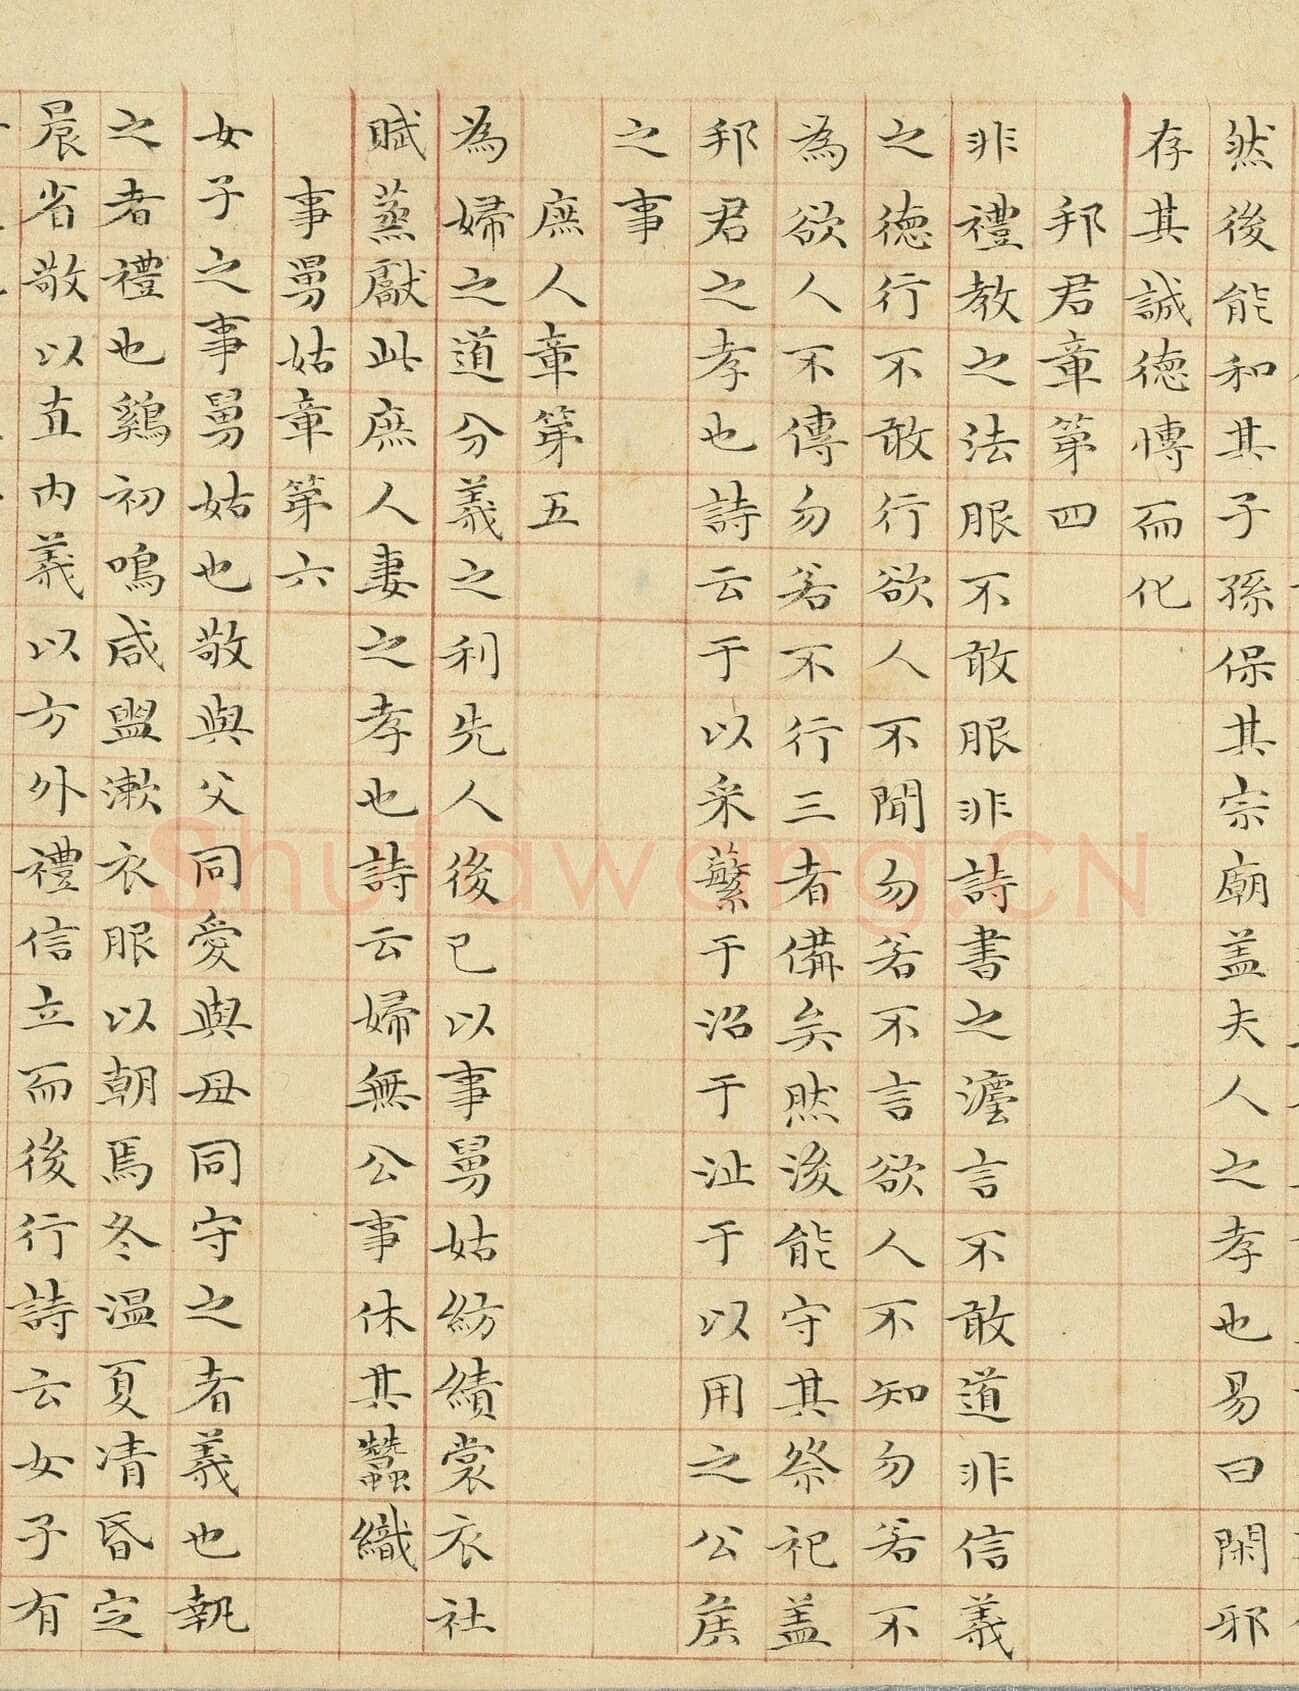 然後能和其子孫保其宗廟盖夫人之孝也易曰閑邪
存其誠德愽而化
邦君章第四
非禮教之法服不敢服非詩書之灋言不敢道非信義
之德行不敢行欲人不聞勿若不言欲人不知勿若不
為欲人不傳勿若不行三者備矣然後能守其祭祀盖
邦君之孝也詩云于以采蘩于沼于沚于以用之公侯
之事
庶人章第五
為婦之道分義之利先人後已以事舅姑紡績裳衣社
賦蒸獻此庶人妻之孝也詩云婦無公事休其蠶織
事舅姑章第六
女子之事舅姑也敬與父同愛與母同守之者義也執
之者禮也鷄初鳴咸盥漱衣服以朝焉冬温夏凊昏定
晨省敬以直内義以方外禮信立而後行詩云女子有
Shufawang.CN